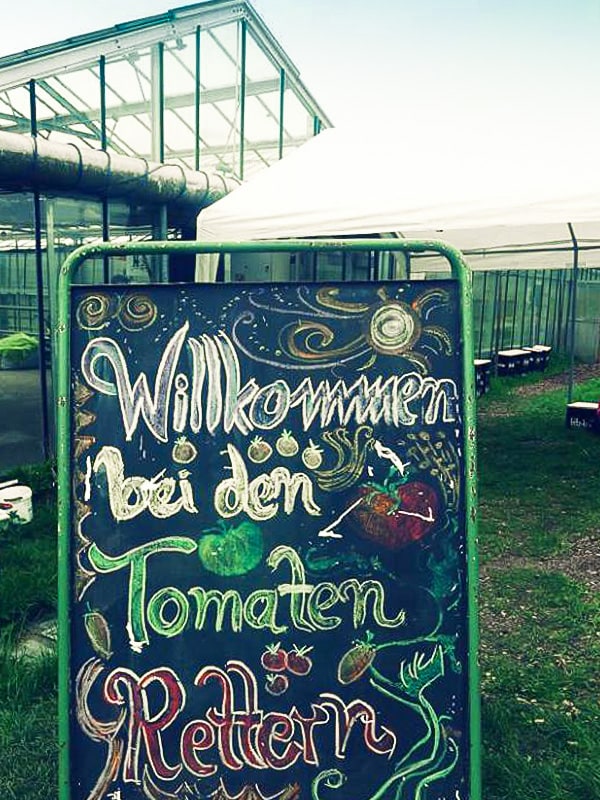 Willkommen
bei den
Tomaten
Rettern